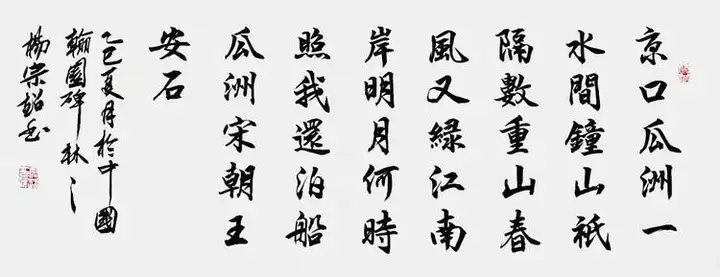 京口瓜洲一
水間鐘山祇
隔數重山春
風又緑江南
岸明月何時
照我還泊船
瓜洲宋朝王
安石
乙巳夏月於中國
翰園碑林
楊